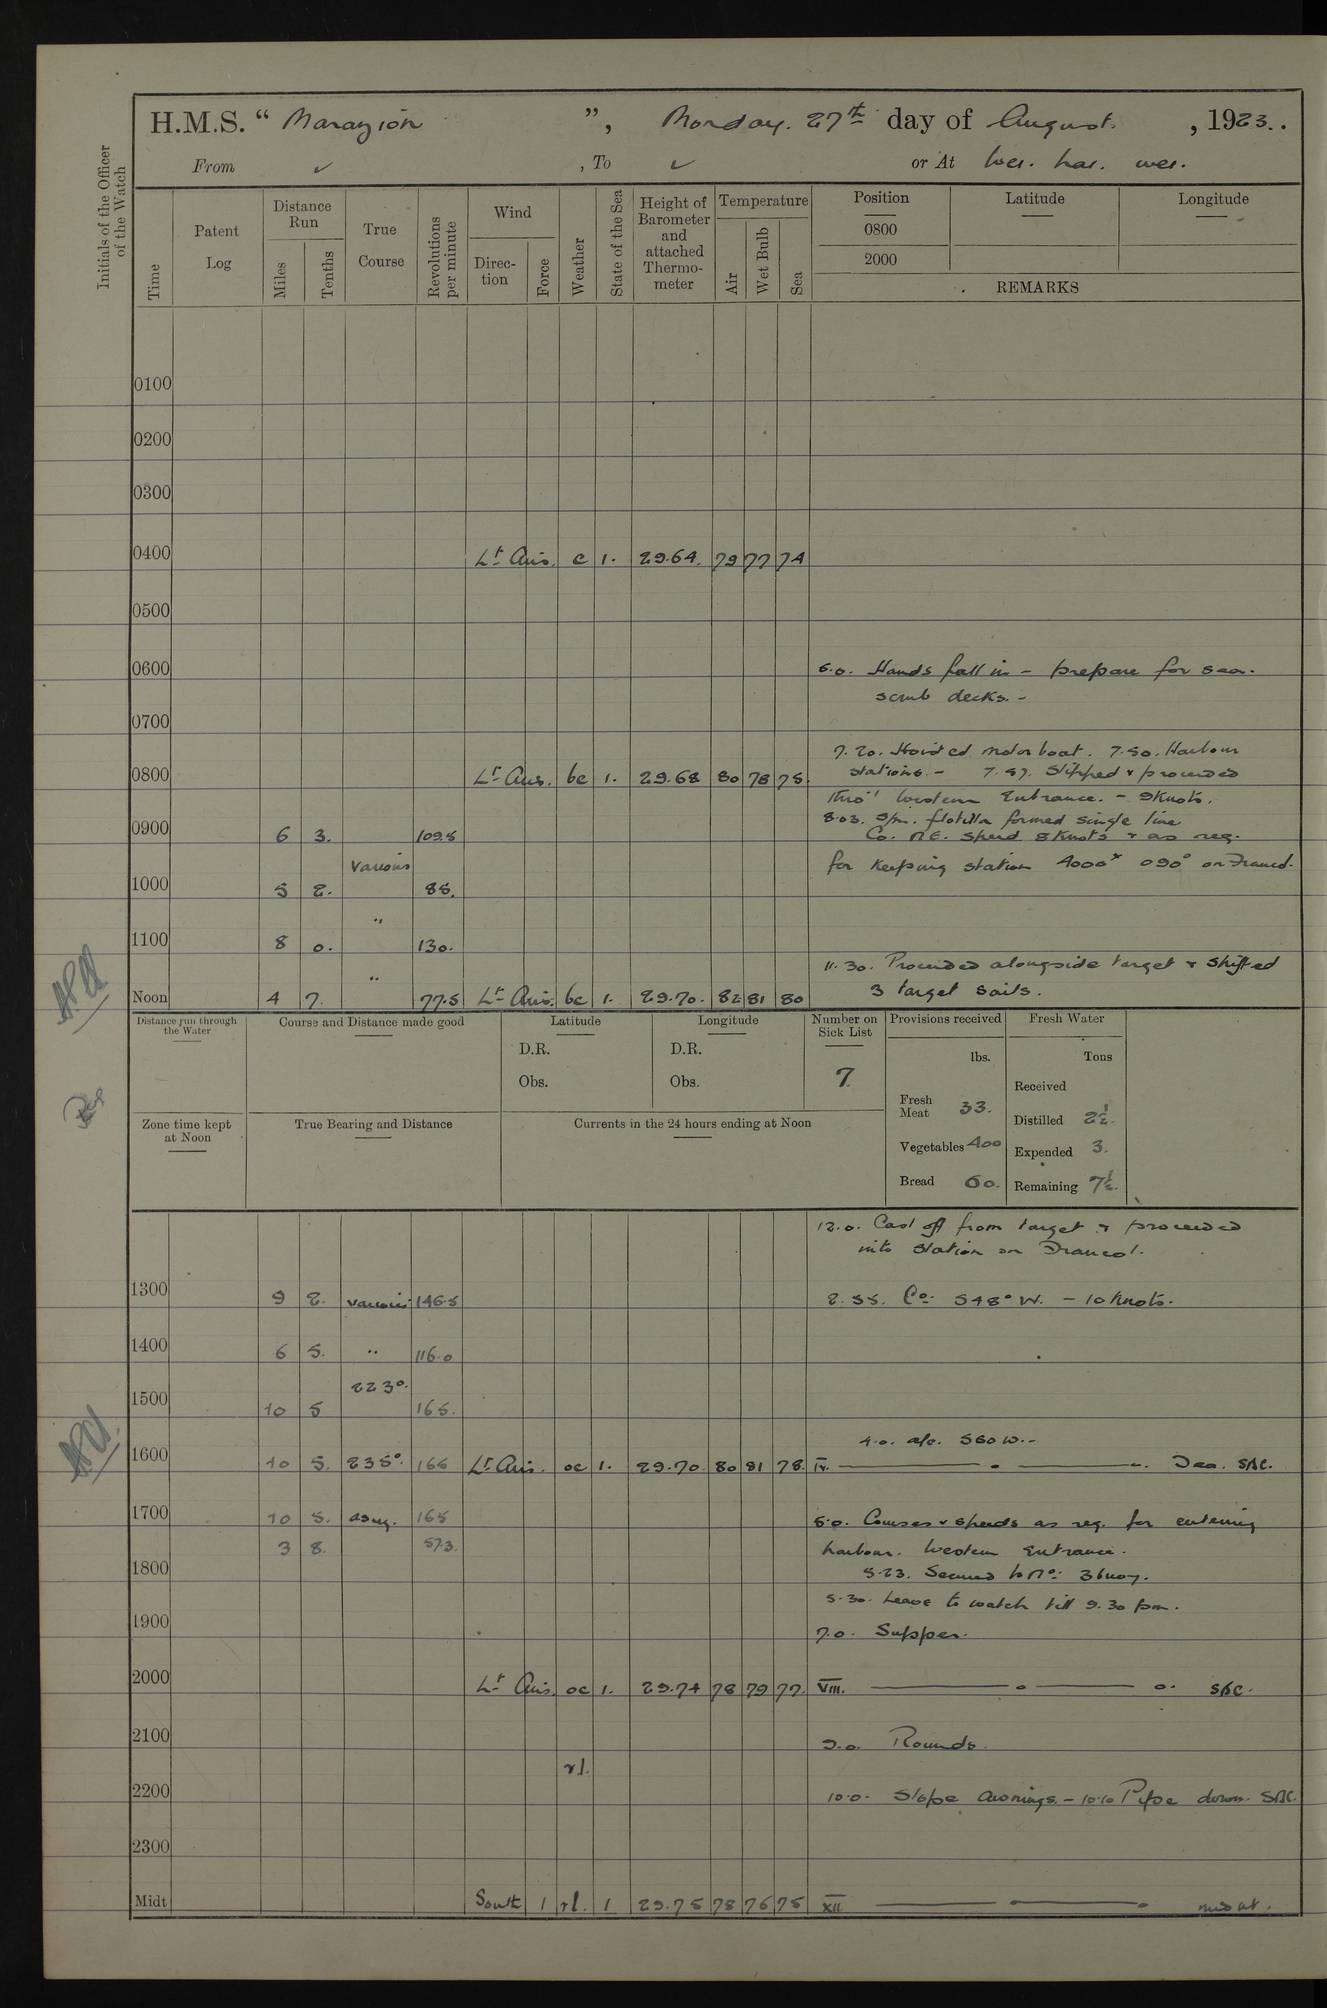 H.M.S. “ Marazion ”, Monday. 27th day of August. , 1923.
From ✓ , To ✓ or At Wei. hai. wei.
Initials of the Officer of the Watch
Time
Patent Log
Distance Run
Miles
Tenths
True Course
Revolutions per minute
Wind
Direction
Force
Weather
State of the Sea
Height of Barometer and attached Thermometer
Temperature
Air
Wet Bulb
Sea
Position
0800
2000
Latitude
Longitude
REMARKS
0100
0200
0300
0400 Lt Airs. c 1. 29.64. 79 77 74
0500
0600 6.0. Hands fall in - prepare for sea.
scrub decks. -
0700
7.20. Hoisted motor boat. 7.50. Harbour
0800 Lt Airs. bc 1. 29.68 80 78 75. stations. - 7.57. Slipped & proceeded
thro' Western Entrance. - 9 Knots.
8.03. flotilla formed single line
0900 6 3. 109.5 Co. N.E. Speed 8 Knots & as req.
Various for keeping station 4000x 090°
1000 5 2. 85.
"
1100 8 0. 130.
" 11.30. Proceeded alongside target & shifted
Noon 4 7. 77.5 Lt Airs. bc 1. 29.70. 82 81 80 3 target sails.
Distance run through the Water
Course and Distance made good
Latitude
D.R.
Obs.
Longitude
D.R.
Obs.
Number on Sick List
7
Provisions received
lbs.
Fresh Meat 33.
Vegetables 400
Bread 60.
Fresh Water
Tons
Received
Distilled 2½.
Expended 3.
Remaining 7½.
Zone time kept at Noon
True Bearing and Distance
Currents in the 24 hours ending at Noon
12.0. Cast off from target & proceeded
into station on
1300 9 2. various 146.5 2.55. Co: S48°W. - 10 Knots.
1400 6 5. " 116.0
223°.
1500 10 5 165.
4.0. a/c. S60W. -
1600 10 5. 235°. 166 Lt Airs. oc 1. 29.70. 80 81 78. IV.
1700 10 5. as req. 165 5.0. Courses & speeds as req. for entering
3 8. 57.3. harbour. Western Entrance.
1800 5.23. Secured to No: 3 buoy.
5.30. Leave to watch till 9.30 pm.
1900 7.0. Supper.
2000 Lt Airs. oc 1. 29.74 78 79 77. VIII.
2100 9.0. Rounds.
rl.
2200 10.0. Slope Awnings. - 10.10 Pipe down.
2300
Midt South 1 rl. 1 29.75 78 76 75 XII